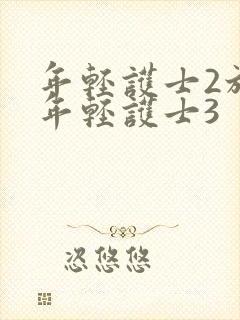 年輕護士2
年輕護士3
恣悠悠